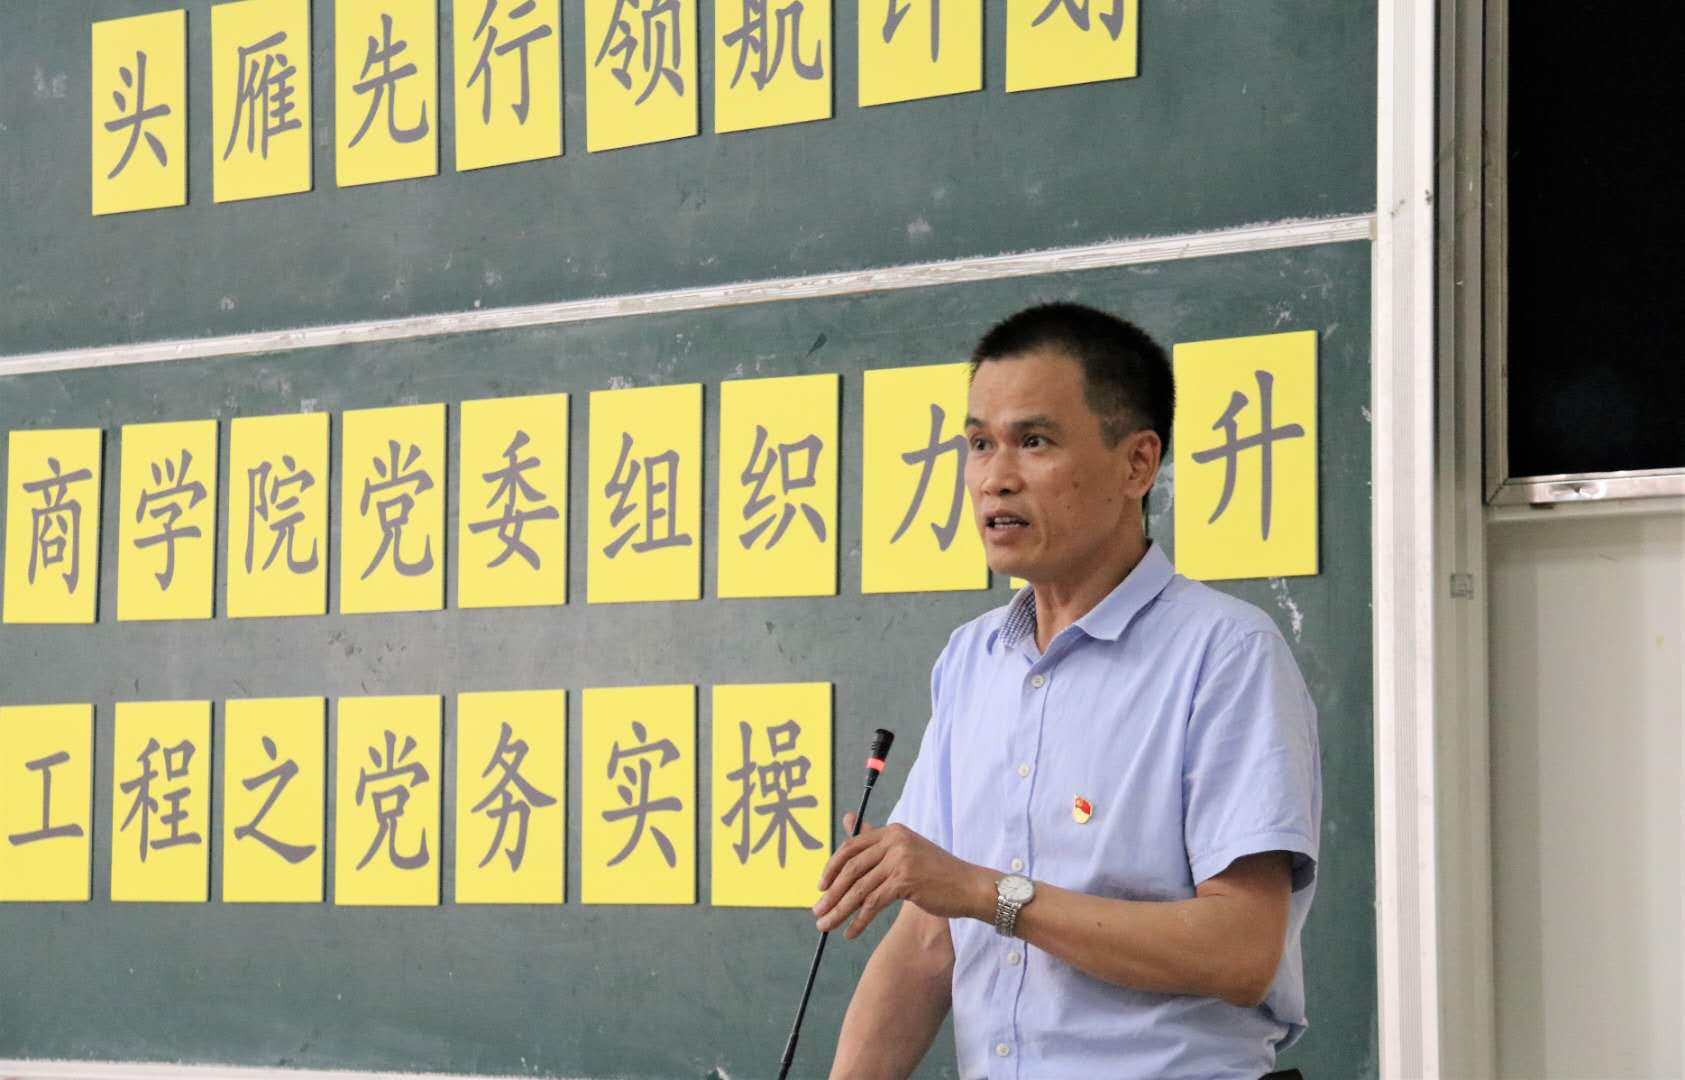 头雁先行领航计划
商学院党委组织力升
工程之党务实操